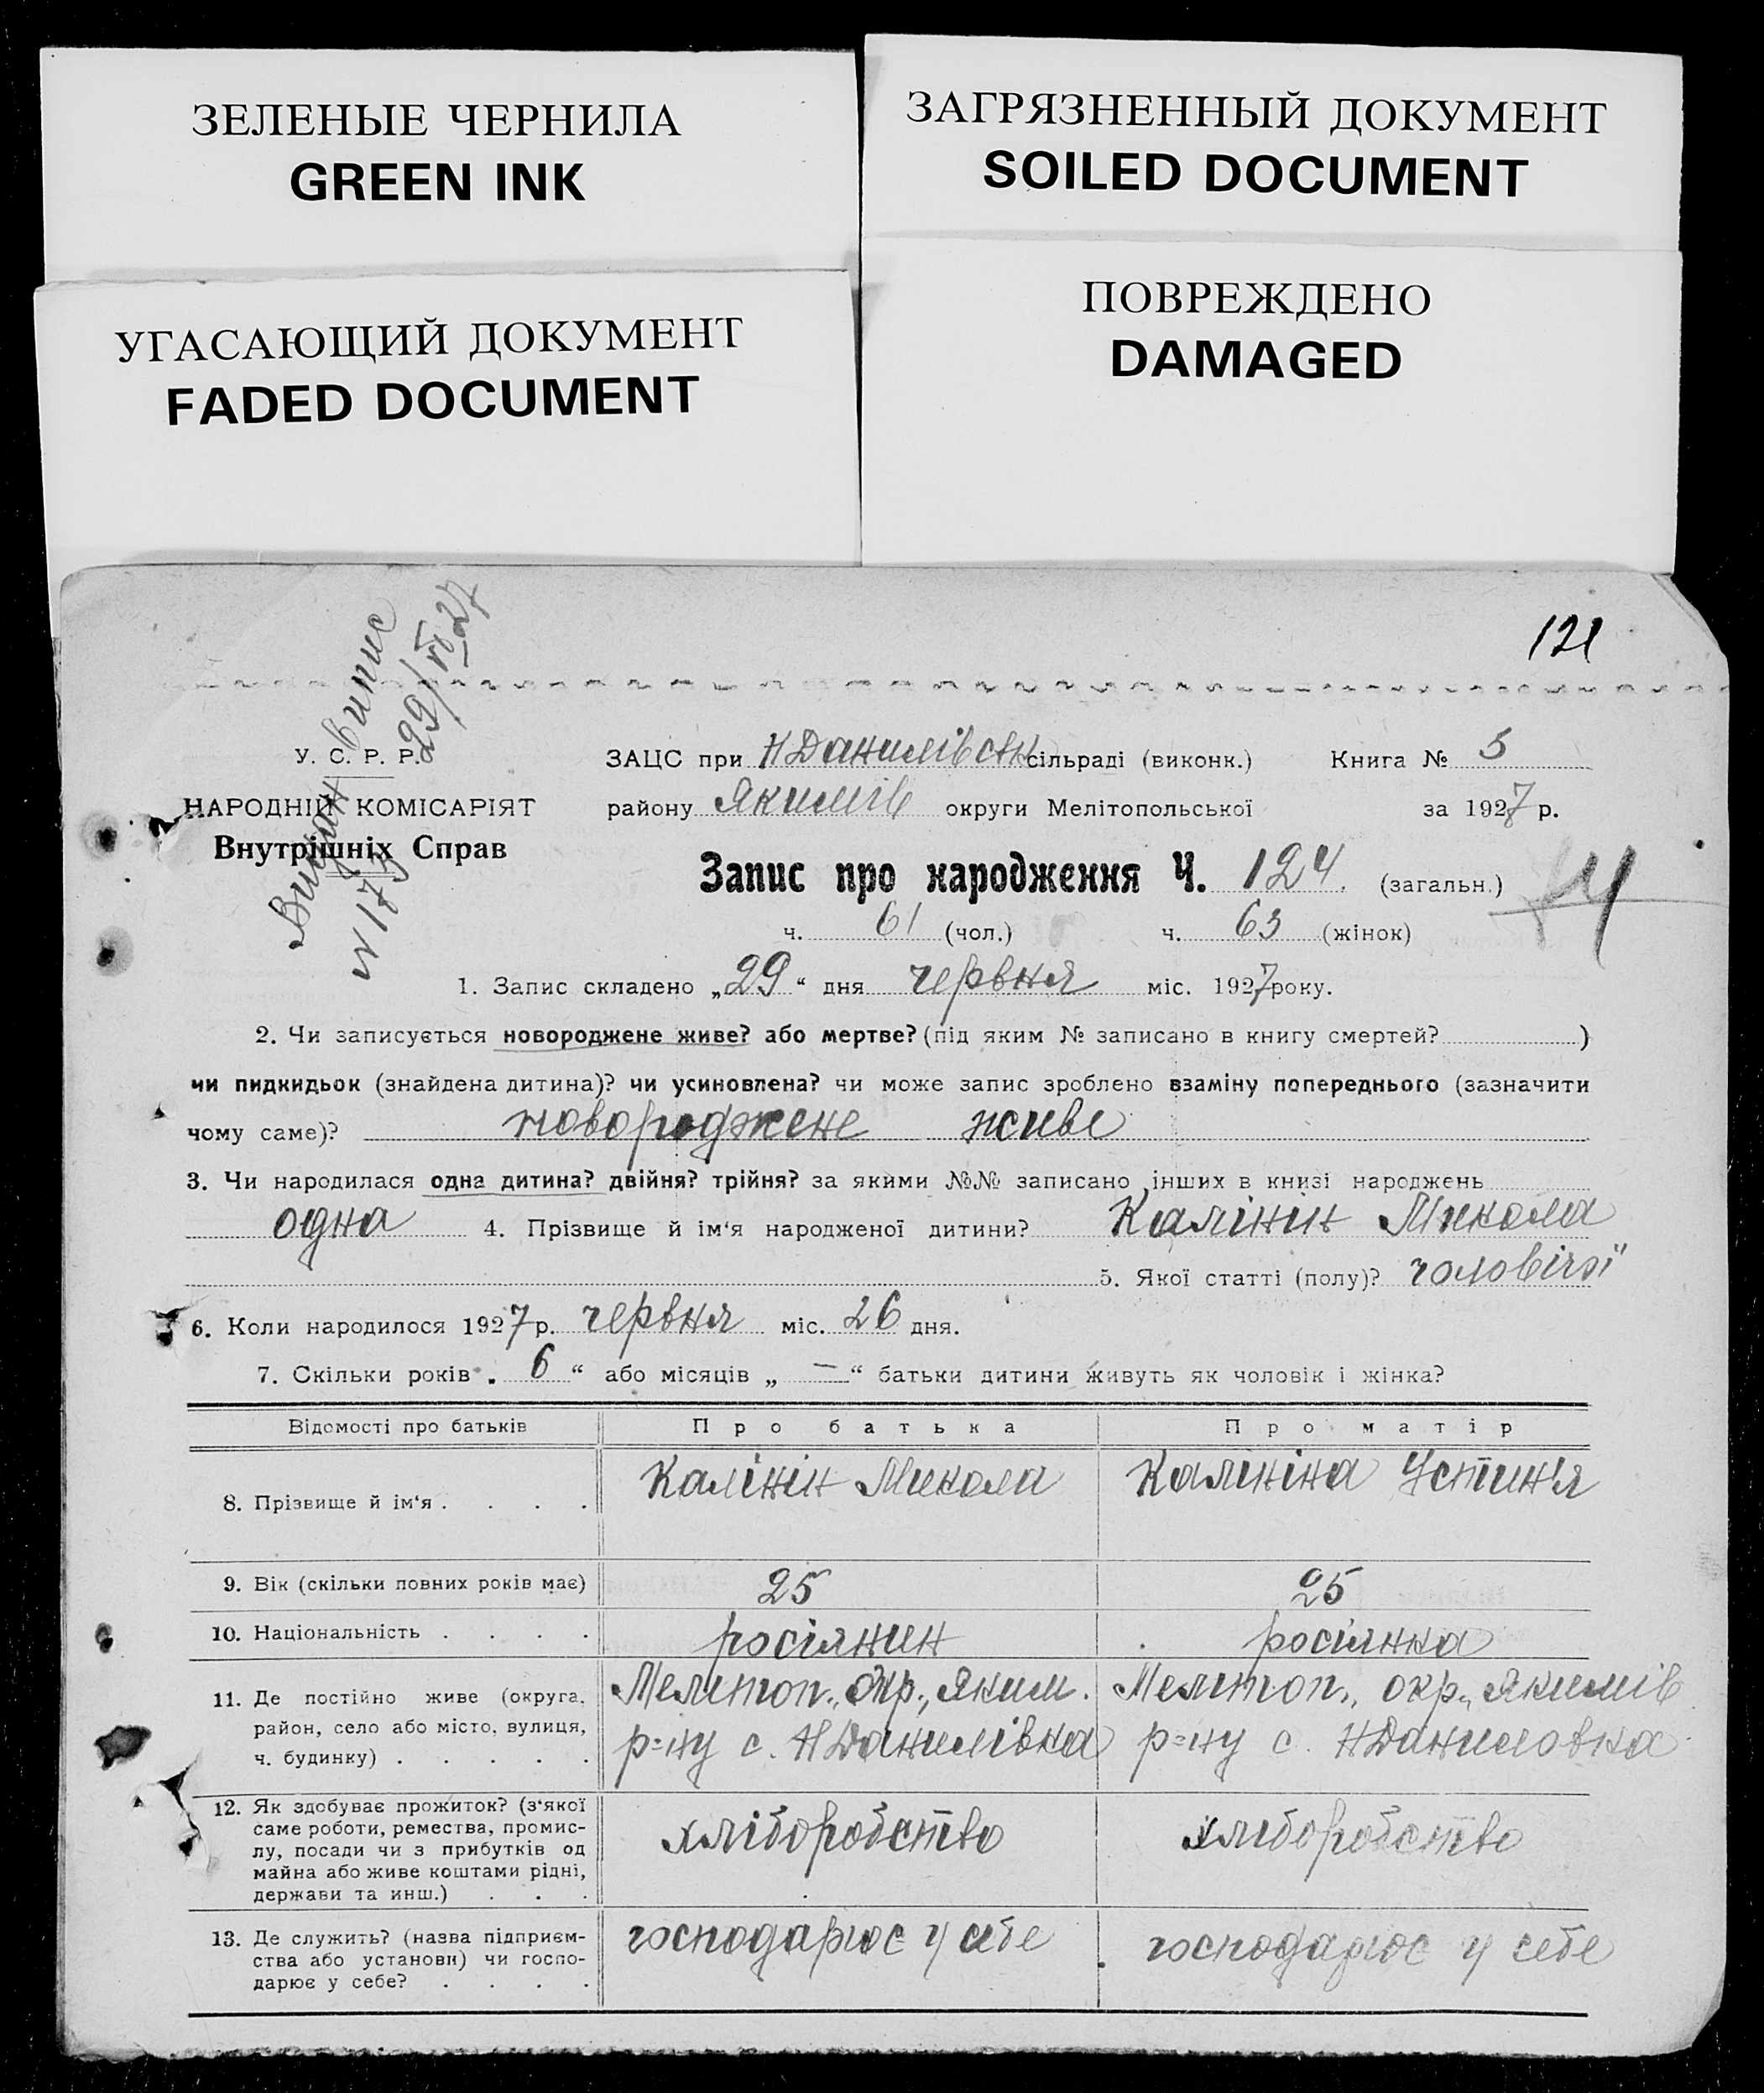 ЗЕЛЕНЫЕ ЧЕРНИЛА
GREEN INK
ЗАГРЯЗНЕННЫЙ ДОКУМЕНТ
SOILED DOCUMENT
УГАСАЮЩИЙ ДОКУМЕНТ
FADED DOCUMENT
ПОВРЕЖДЕНО
DAMAGED
121
Видан випис
№ 173 29/VI 27
У. С. Р. Р.
НАРОДНІЙ КОМІСАРІЯТ
Внутрішніх Справ
ЗАЦС при НДанилівськ сільраді (виконк.) Книга № 5
району Якимів округи Мелітопольської за 1927 р.
Запис про народження Ч. 124. (загальн.)
ч. 61 (чол.) ч. 63 (жінок)
1. Запис складено „29“ дня червня міс. 1927 року.
2. Чи записується новороджене живе? або мертве? (під яким № записано в книгу смертей? )
чи пидкидьок (знайдена дитина)? чи усиновлена? чи може запис зроблено взаміну попереднього (зазначити
чому саме)? новороджене живе
3. Чи народилася одна дитина? двійня? трійня? за якими №№ записано інших в книзі народжень
одна 4. Прізвище й ім‘я народженої дитини? Калінін Микола
5. Якої статті (полу)? чоловічої
6. Коли народилося 1927 р. червня міс. 26 дня.
7. Скільки років „ 6 “ або місяців „ — “ батьки дитини живуть як чоловік і жінка?
Відомості про батьків Про батька Про матір
8. Прізвище й ім‘я . . . . Калінін Микола Калініна Устинья
9. Вік (скільки повних років має) 25 25
10. Національність . . . . росіянин росіянка
11. Де постійно живе (округа, район, село або місто, вулиця, ч. будинку) . . . . .
Мелитоп., окр., Яким. р=ну с. НДанилівка
Мелитоп., окр., Якимів р=ну с. НДаниловка
12. Як здобуває прожиток? (з‘якої саме роботи, ремества, промис-
лу, посади чи з прибутків од
майна або живе коштами рідні,
держави та инш.) . . .
хліборобство хлиборобство
13. Де служить? (назва підприєм-
ства або установи) чи госпо-
дарює у себе? . . . .
господарює у себе господарює у себе